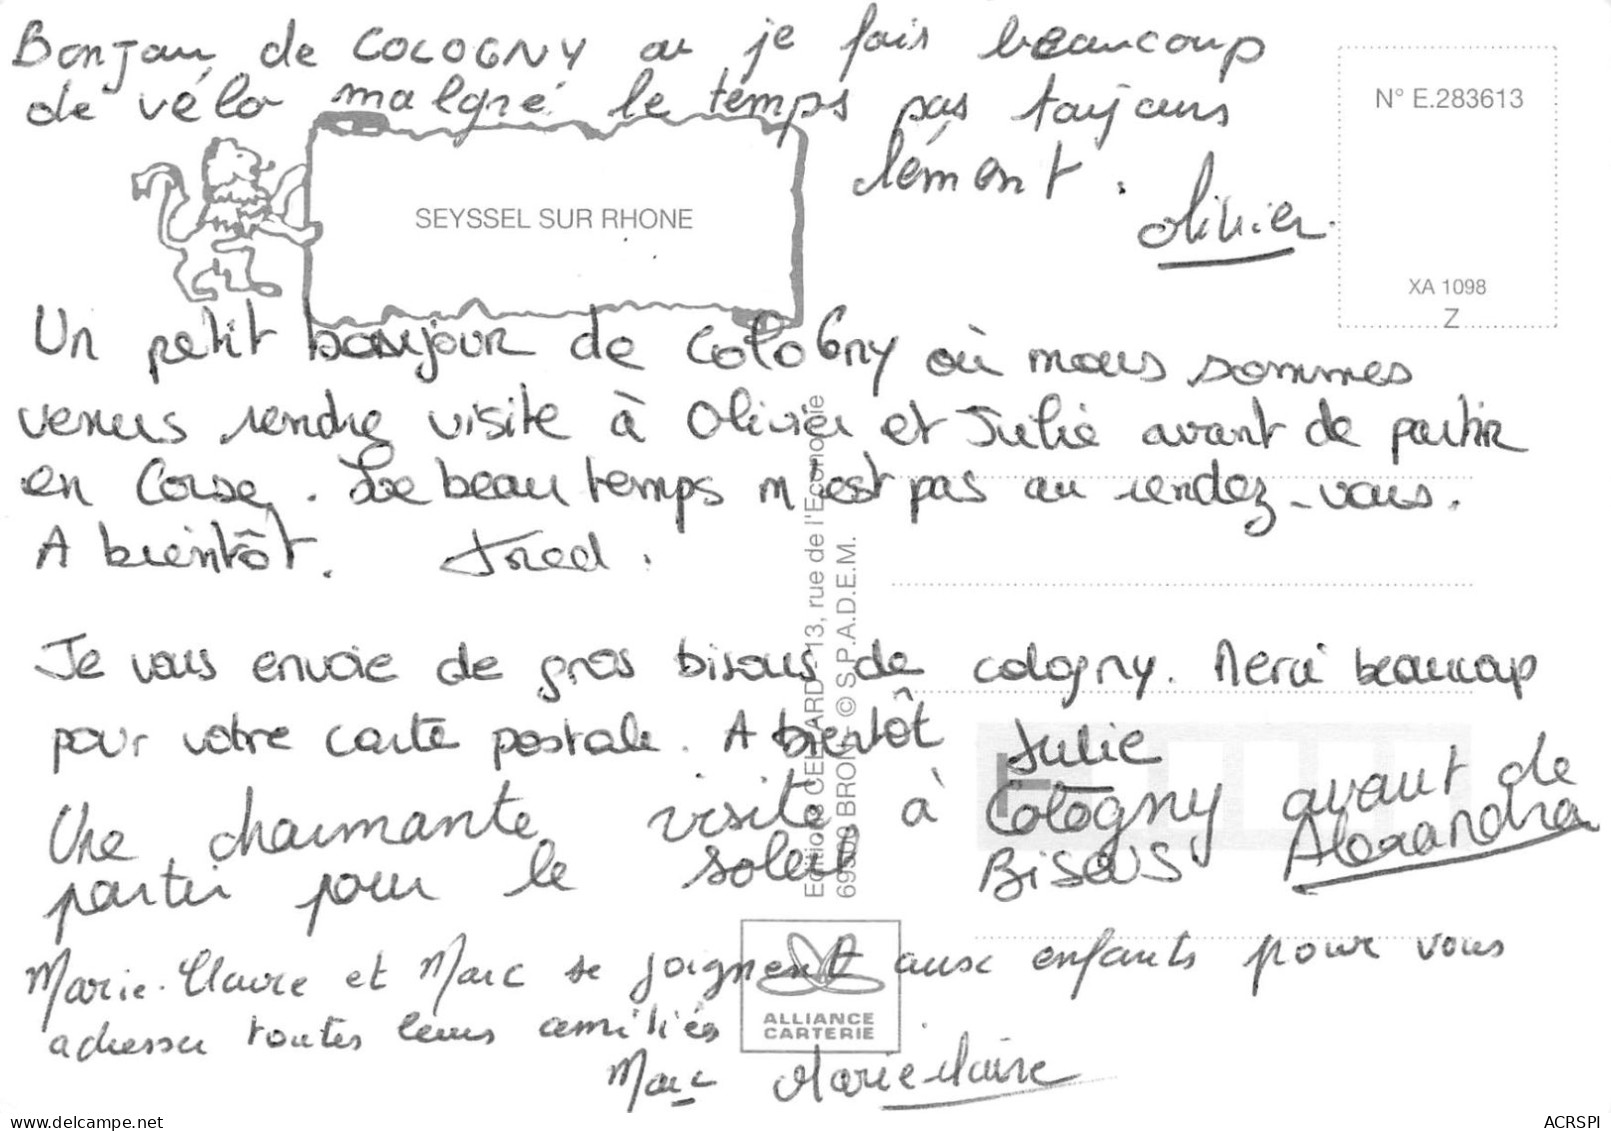 Bonjour de COLOGNY ou je fais beaucoup
de vélo malgré le temps pas toujours
clément. Olivier.
N° E.283613
SEYSSEL SUR RHONE
XA 1098
Z
Un petit bonjour de Cologny où nous sommes
venus rendre visite à Olivier et Julie avant de partir
en Corse. Le beau temps n'est pas au rendez-vous.
A bientôt. Fred.
Je vous envoie de gros bisous de cologny. Merci beaucoup
pour votre carte postale. A bientôt Julie
Une charmante visite à Cologny avant de
partir pour le soleil BISOUS Alexandra
Marie-Claire et Marc se joignent aux enfants pour vous
adresser toutes leurs amitiés
Marc Marie-Claire
Editions CELLARD - 13, rue de l'Economie
69500 BRON - © S.P.A.D.E.M.
ALLIANCE
CARTERIE
delcampe.net
ACRSPI